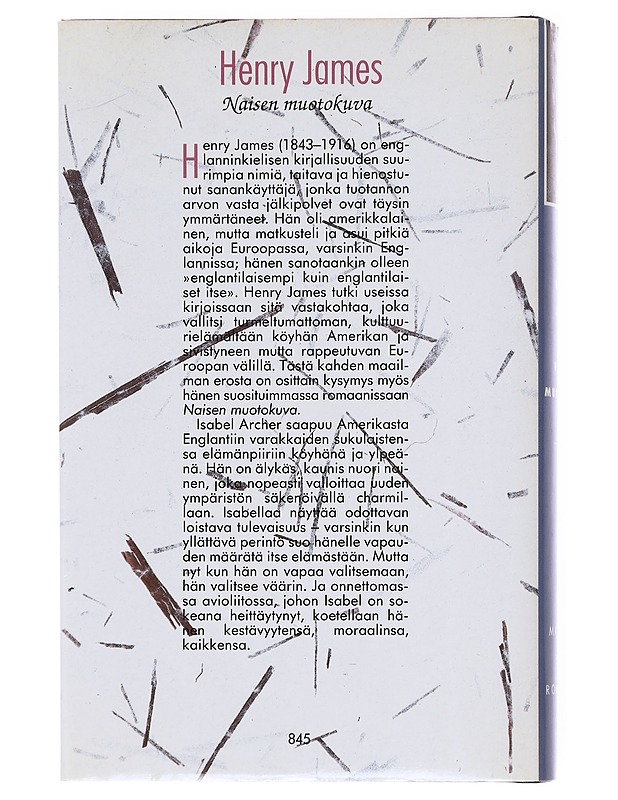 Henry James
Naisen muotokuva
Henry James (1843–1916) on eng-
lanninkielisen kirjallisuuden suu-
rimpia nimiä, taitava ja hienostu-
nut sanankäyttäjä, jonka tuotannon
arvon vasta jälkipolvet ovat täysin
ymmärtäneet. Hän oli amerikkalai-
nen, mutta matkusteli ja asui pitkiä
aikoja Euroopassa, varsinkin Eng-
lannissa; hänen sanotaankin olleen
»englantilaisempi kuin englantilai-
set itse». Henry James tutki useissa
kirjoissaan sitä vastakohtaa, joka
vallitsi turmeltumattoman, kulttuu-
rielämältään köyhän Amerikan ja
sivistyneen mutta rappeutuvan Eu-
roopan välillä. Tästä kahden maail-
man erosta on osittain kysymys myös
hänen suosituimmassa romaanissaan
Naisen muotokuva.
Isabel Archer saapuu Amerikasta
Englantiin varakkaiden sukulaisten-
sa elämänpiiriin köyhänä ja ylpeä-
nä. Hän on älykäs, kaunis nuori nai-
nen, joka nopeasti valloittaa uuden
ympäristön säkenöivällä charmil-
laan. Isabellaa näyttää odottavan
loistava tulevaisuus – varsinkin kun
yllättävä perintö suo hänelle vapau-
den määrätä itse elämästään. Mutta
nyt kun hän on vapaa valitsemaan,
hän valitsee väärin. Ja onnettomas-
sa avioliitossa, johon Isabel on so-
keana heittäytynyt, koetellaan hä-
nen kestävyytensä, moraalinsa,
kaikkensa.
845